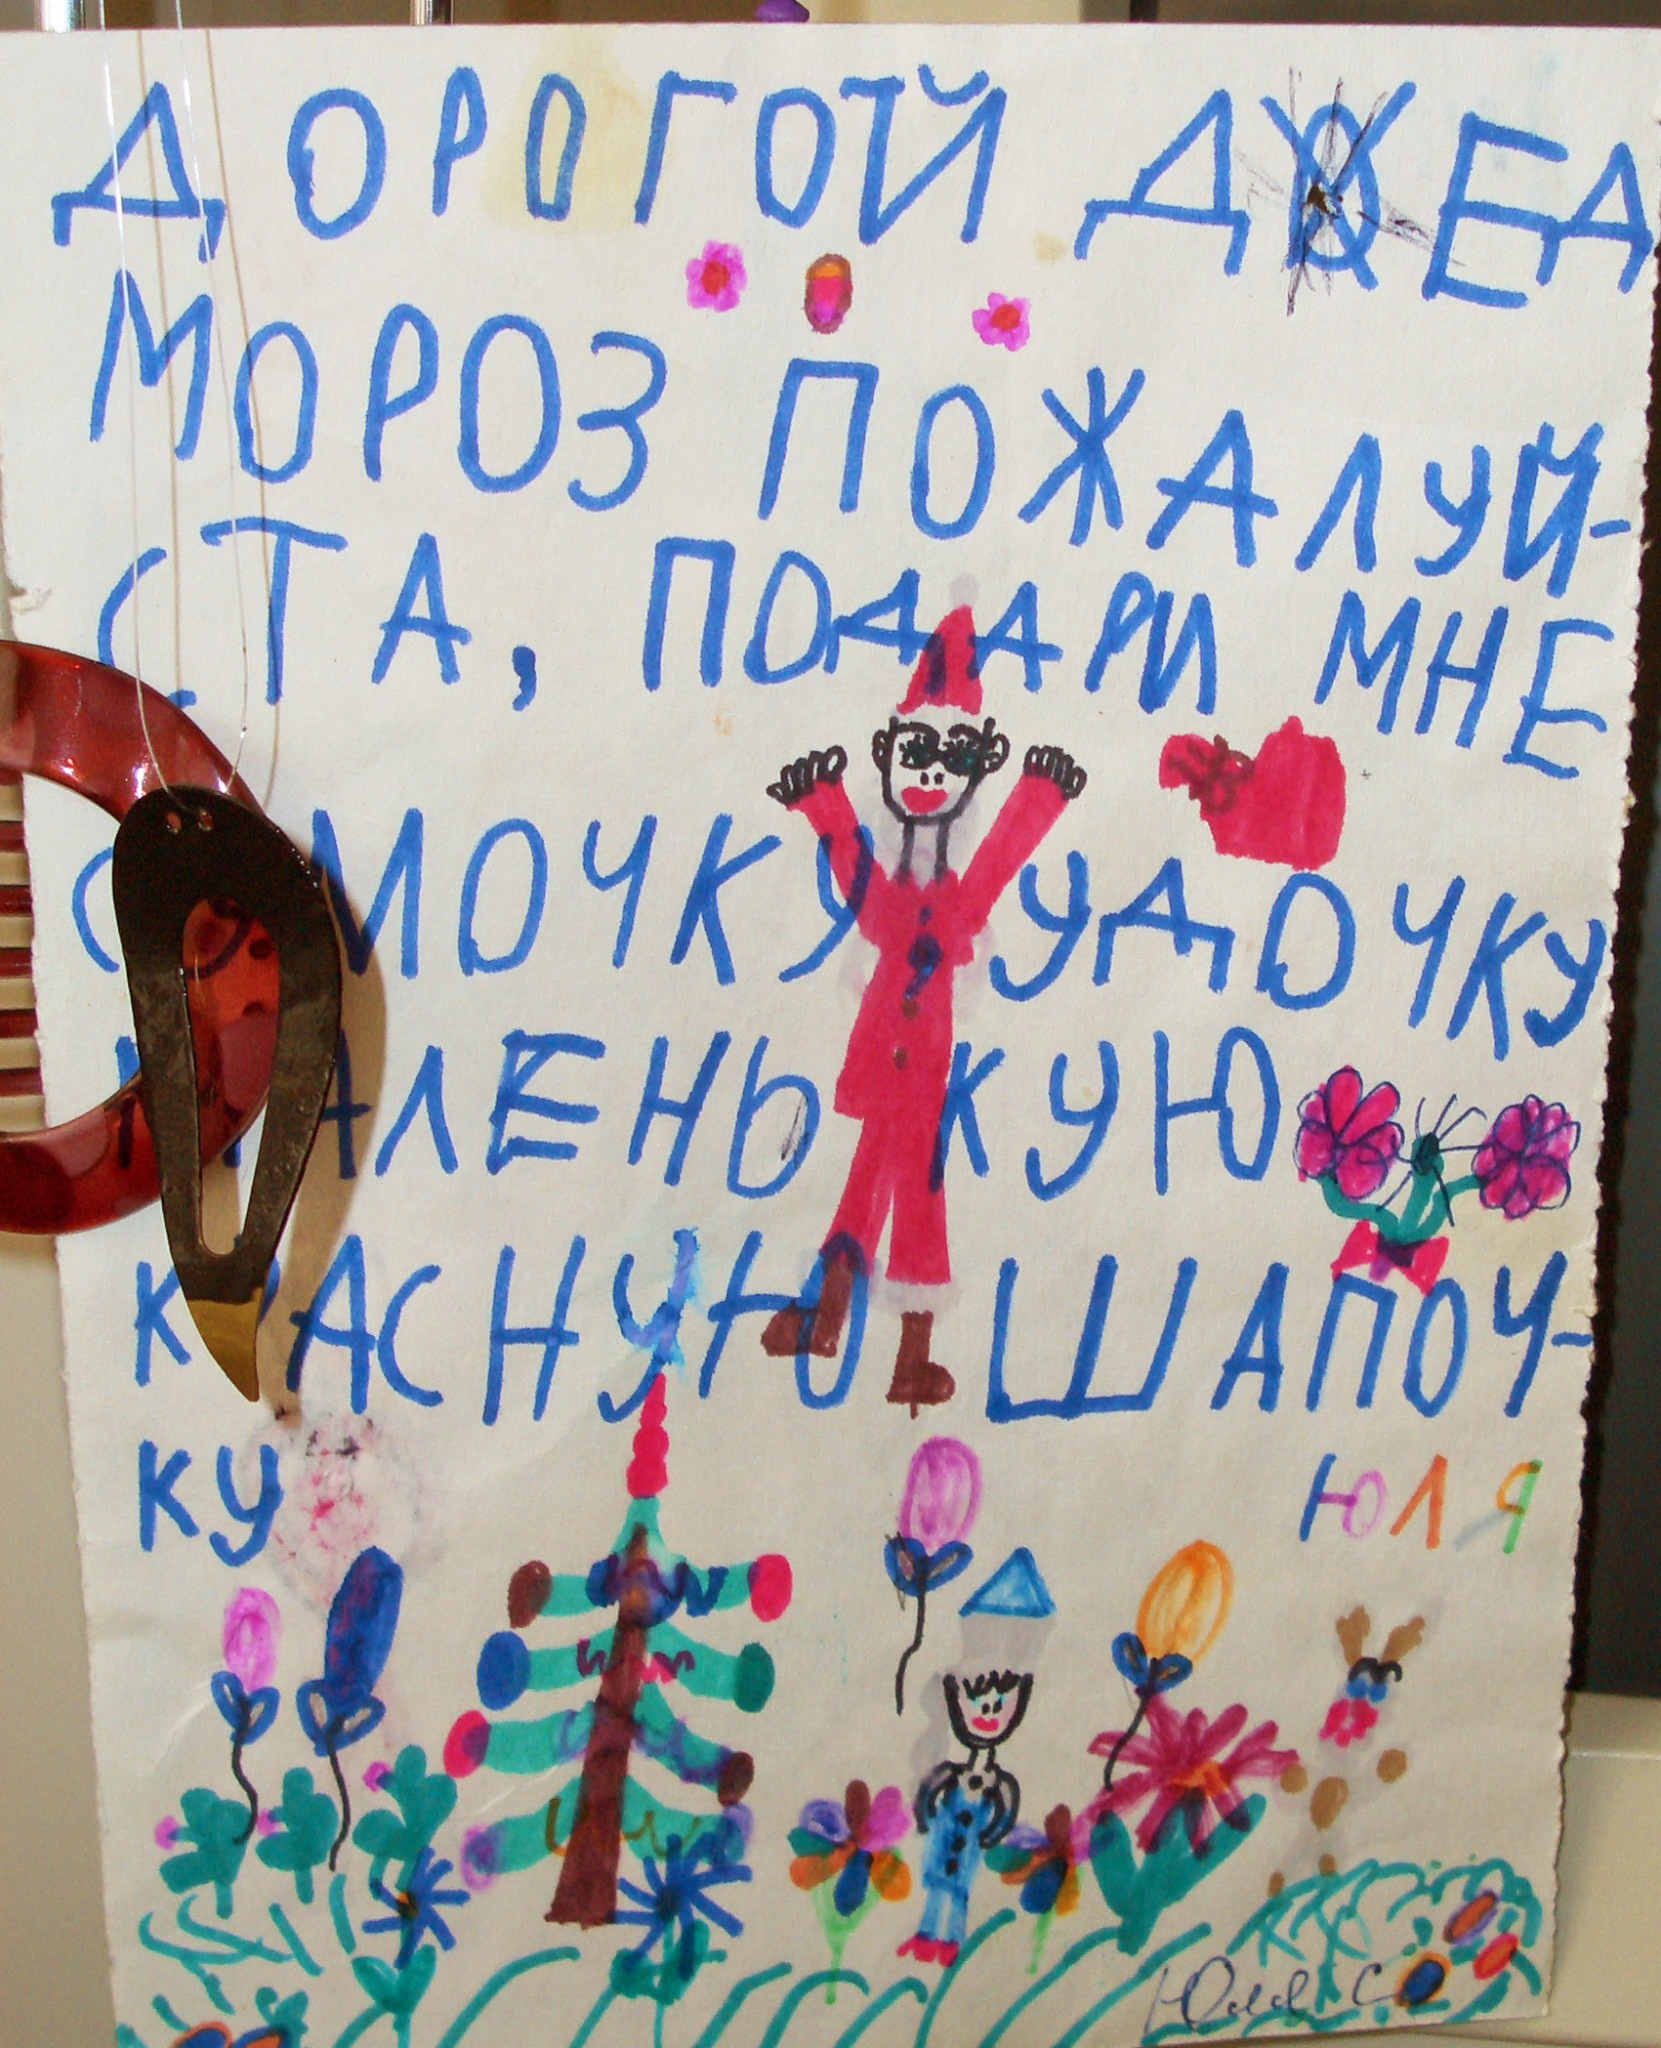 ДОРОГОЙ ДЕД
МОРОЗ ПОЖАЛУЙ-
СТА, ПОДАРИ МНЕ
СУМОЧКУ, УДОЧКУ
МАЛЕНЬКУЮ
КРАСНУЮ ШАПОЧ-
КУ
ЮЛЯ
Юля С